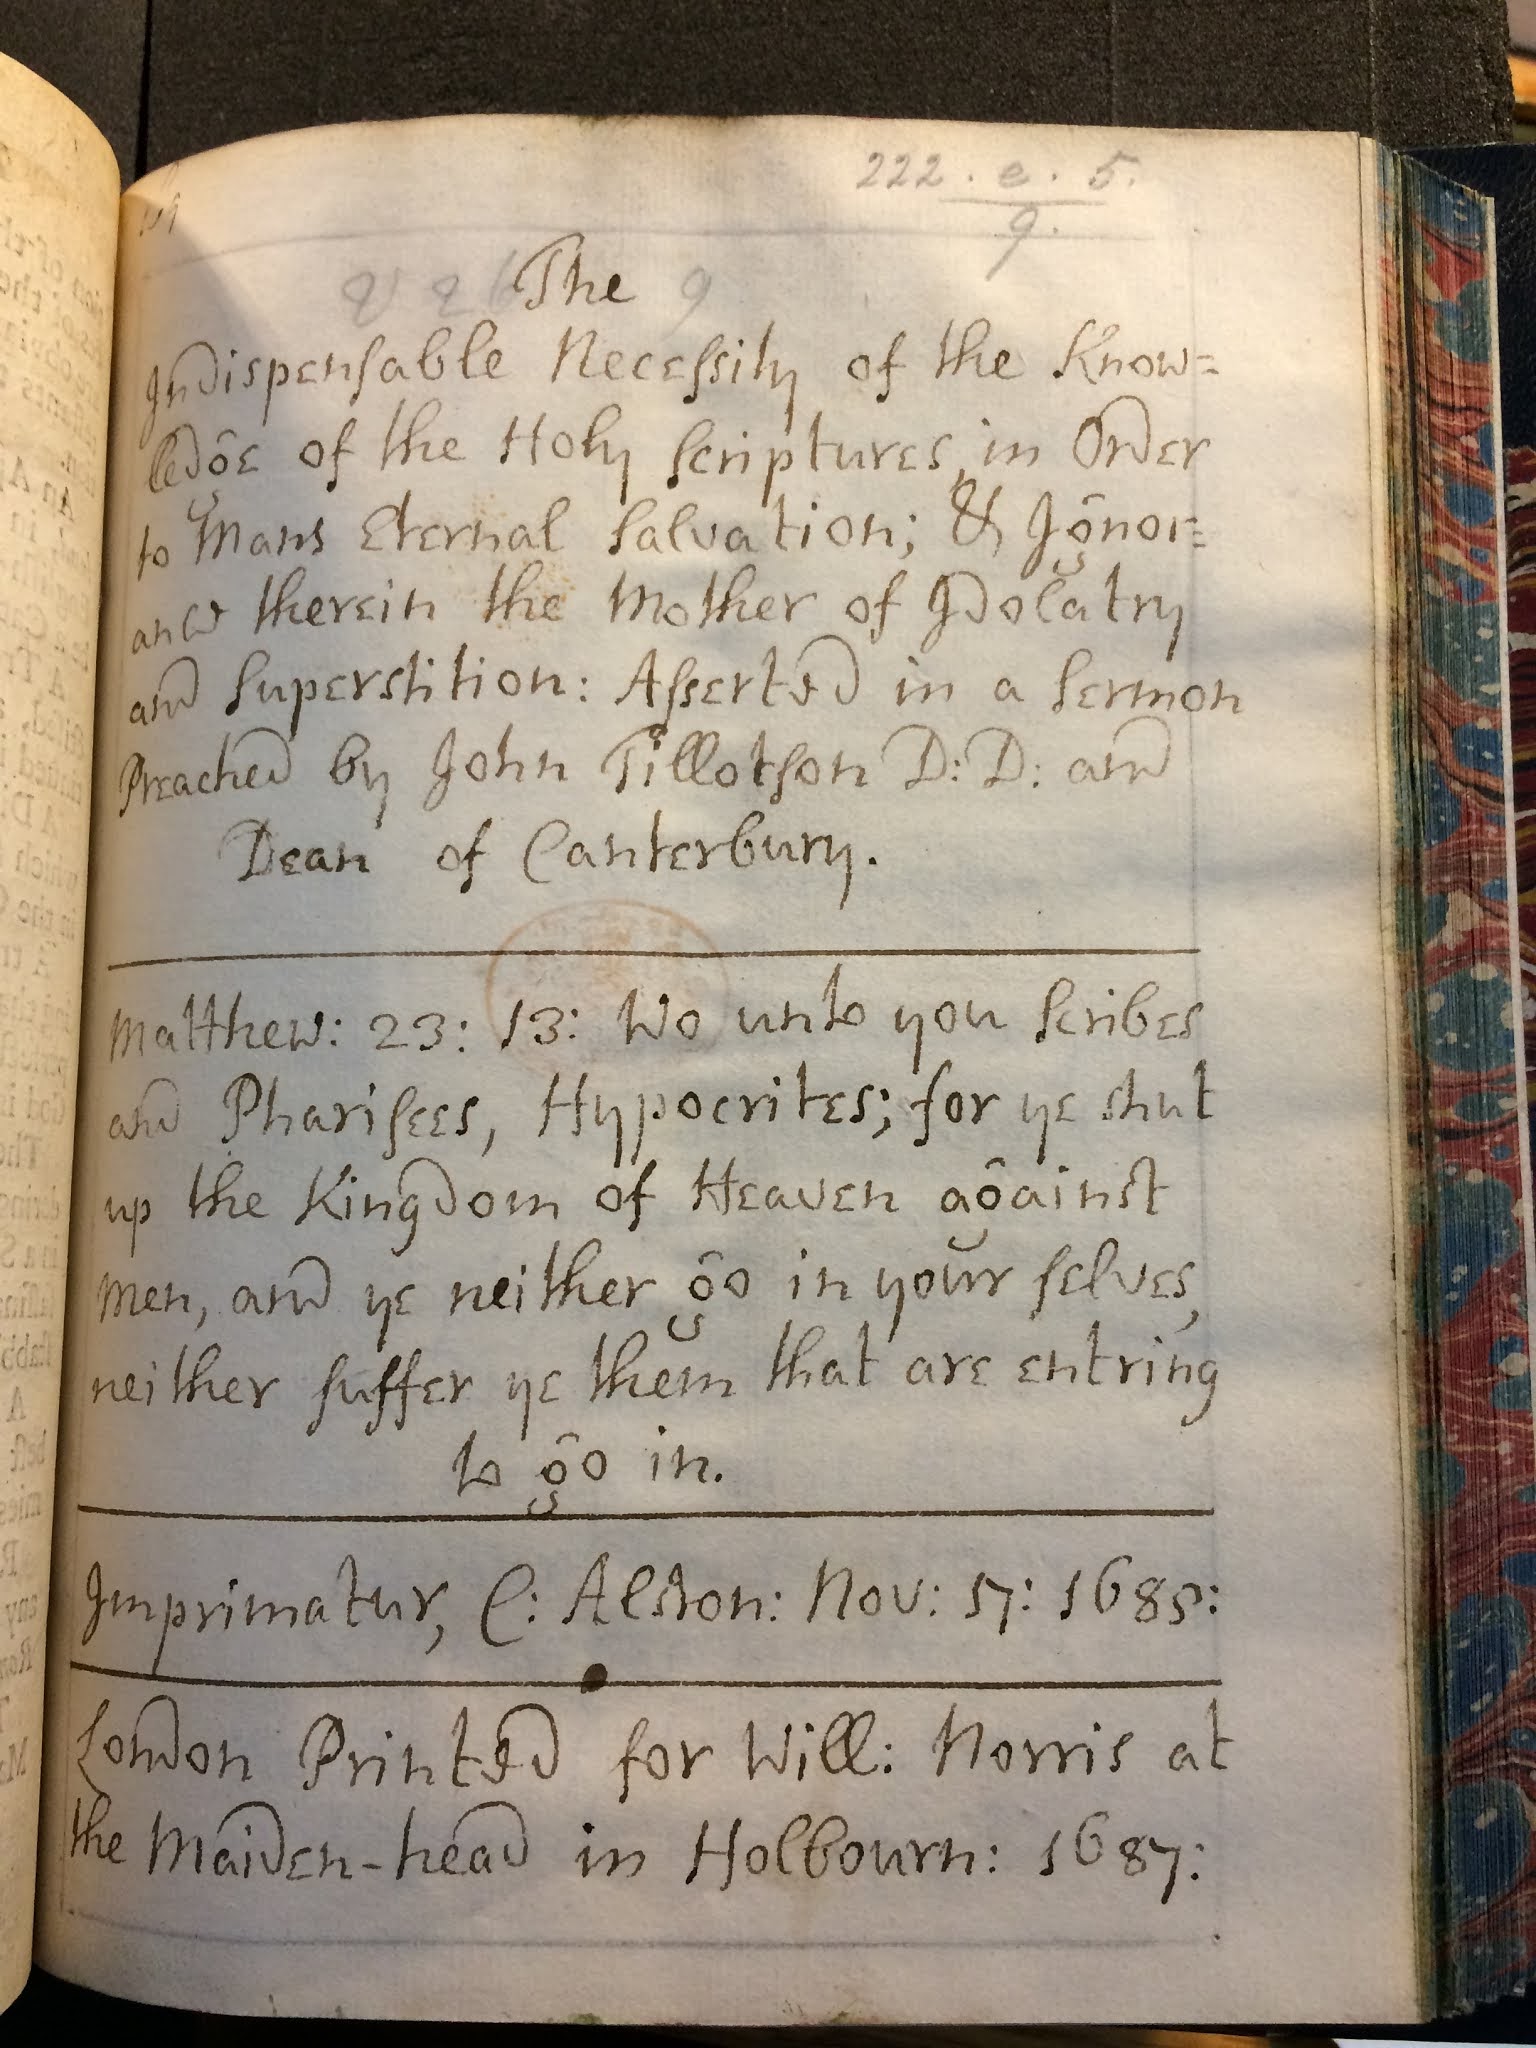 222 . e . 5.
9.
The
Indispensable Necessity of the Know=
ledge of the Holy Scriptures, in Order
to Mans Eternal Salvation; & Ignor=
ance therein the Mother of Idolatry
and Superstition: Asserted in a Sermon
Preached by John Tillotson D: D: and
Dean of Canterbury.
Matthew: 23: 13: Wo unto you Scribes
and Pharisees, Hypocrites; for ye shut
up the Kingdom of Heaven against
men, and ye neither go in your selves,
neither suffer ye them that are entring
to go in.
Imprimatur, C: Alston: Nov: 17: 1685:
London Printed for Will: Norris at
the Maiden-head in Holbourn: 1687: